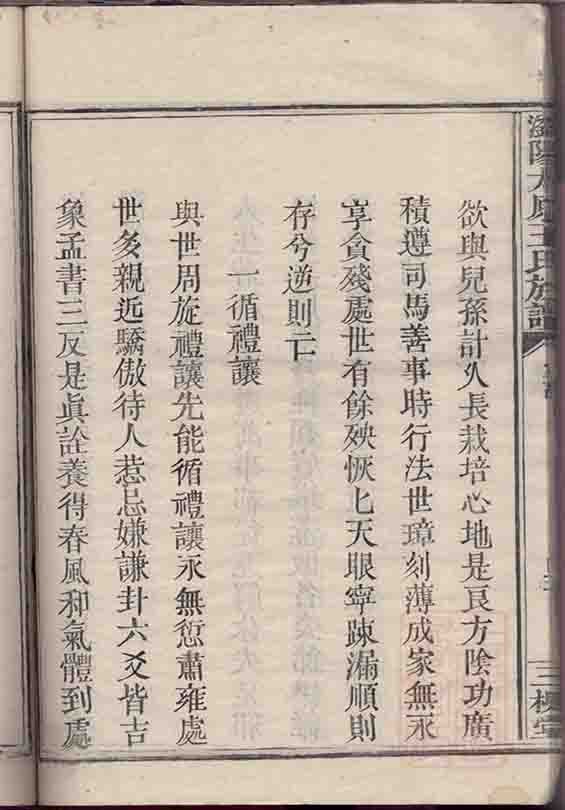 澄陽太原王氏族譜
三槐堂
欲與兒孫計久長栽培心地是良方陰功廣
積遵司馬善事時行法世璋刻薄成家無永
享貪殘處世有餘殃恢恢天眼寧踈漏順則
存兮逆則亡
一循禮讓
與世周旋禮讓先能循禮讓永無愆肅雍處
世多親近驕傲待人惹忌嫌謙卦六爻皆吉
象孟書三反是眞詮養得春風和氣體到處